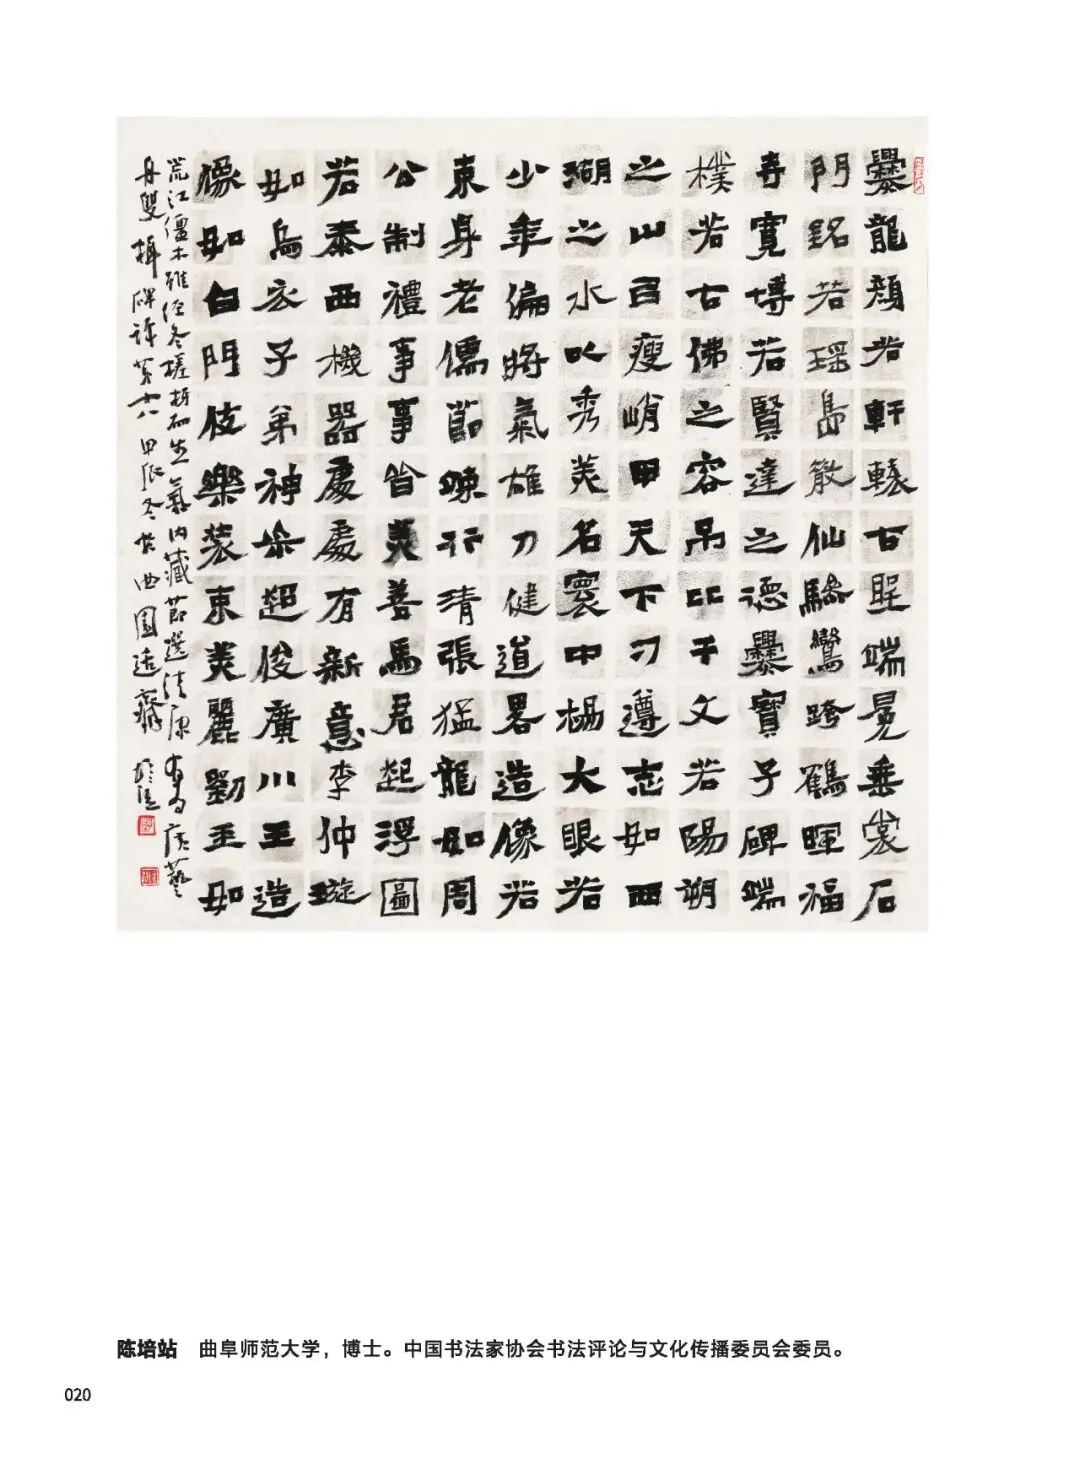 爨龍顏若軒轅古聖端冕垂裳石
門銘若瑶島散仙驂鸞跨鶴暉福
寺寬博若賢達之德爨寶子碑端
樸若古佛之容吊比干文若陽朔
之山㠯瘦峭甲天下刁遵志如西
湖之水以秀美名寰中楊大眼若
少年偏將氣雄力健道畧造像若
束身老儒節疎行清張猛龍如周
公制禮事事皆美善馬君起浮圖
若泰西機器處處有新意李仲璇
如烏衣子弟神采超俊廣川王造
像如白門伎樂裝束美麗劉玉如
荒江僵木雖經冬槎枒而生氣内藏節選清康有為廣藝
舟雙楫碑評第十八甲辰冬於曲園适齋培站
陈培站 曲阜师范大学，博士。中国书法家协会书法评论与文化传播委员会委员。
020